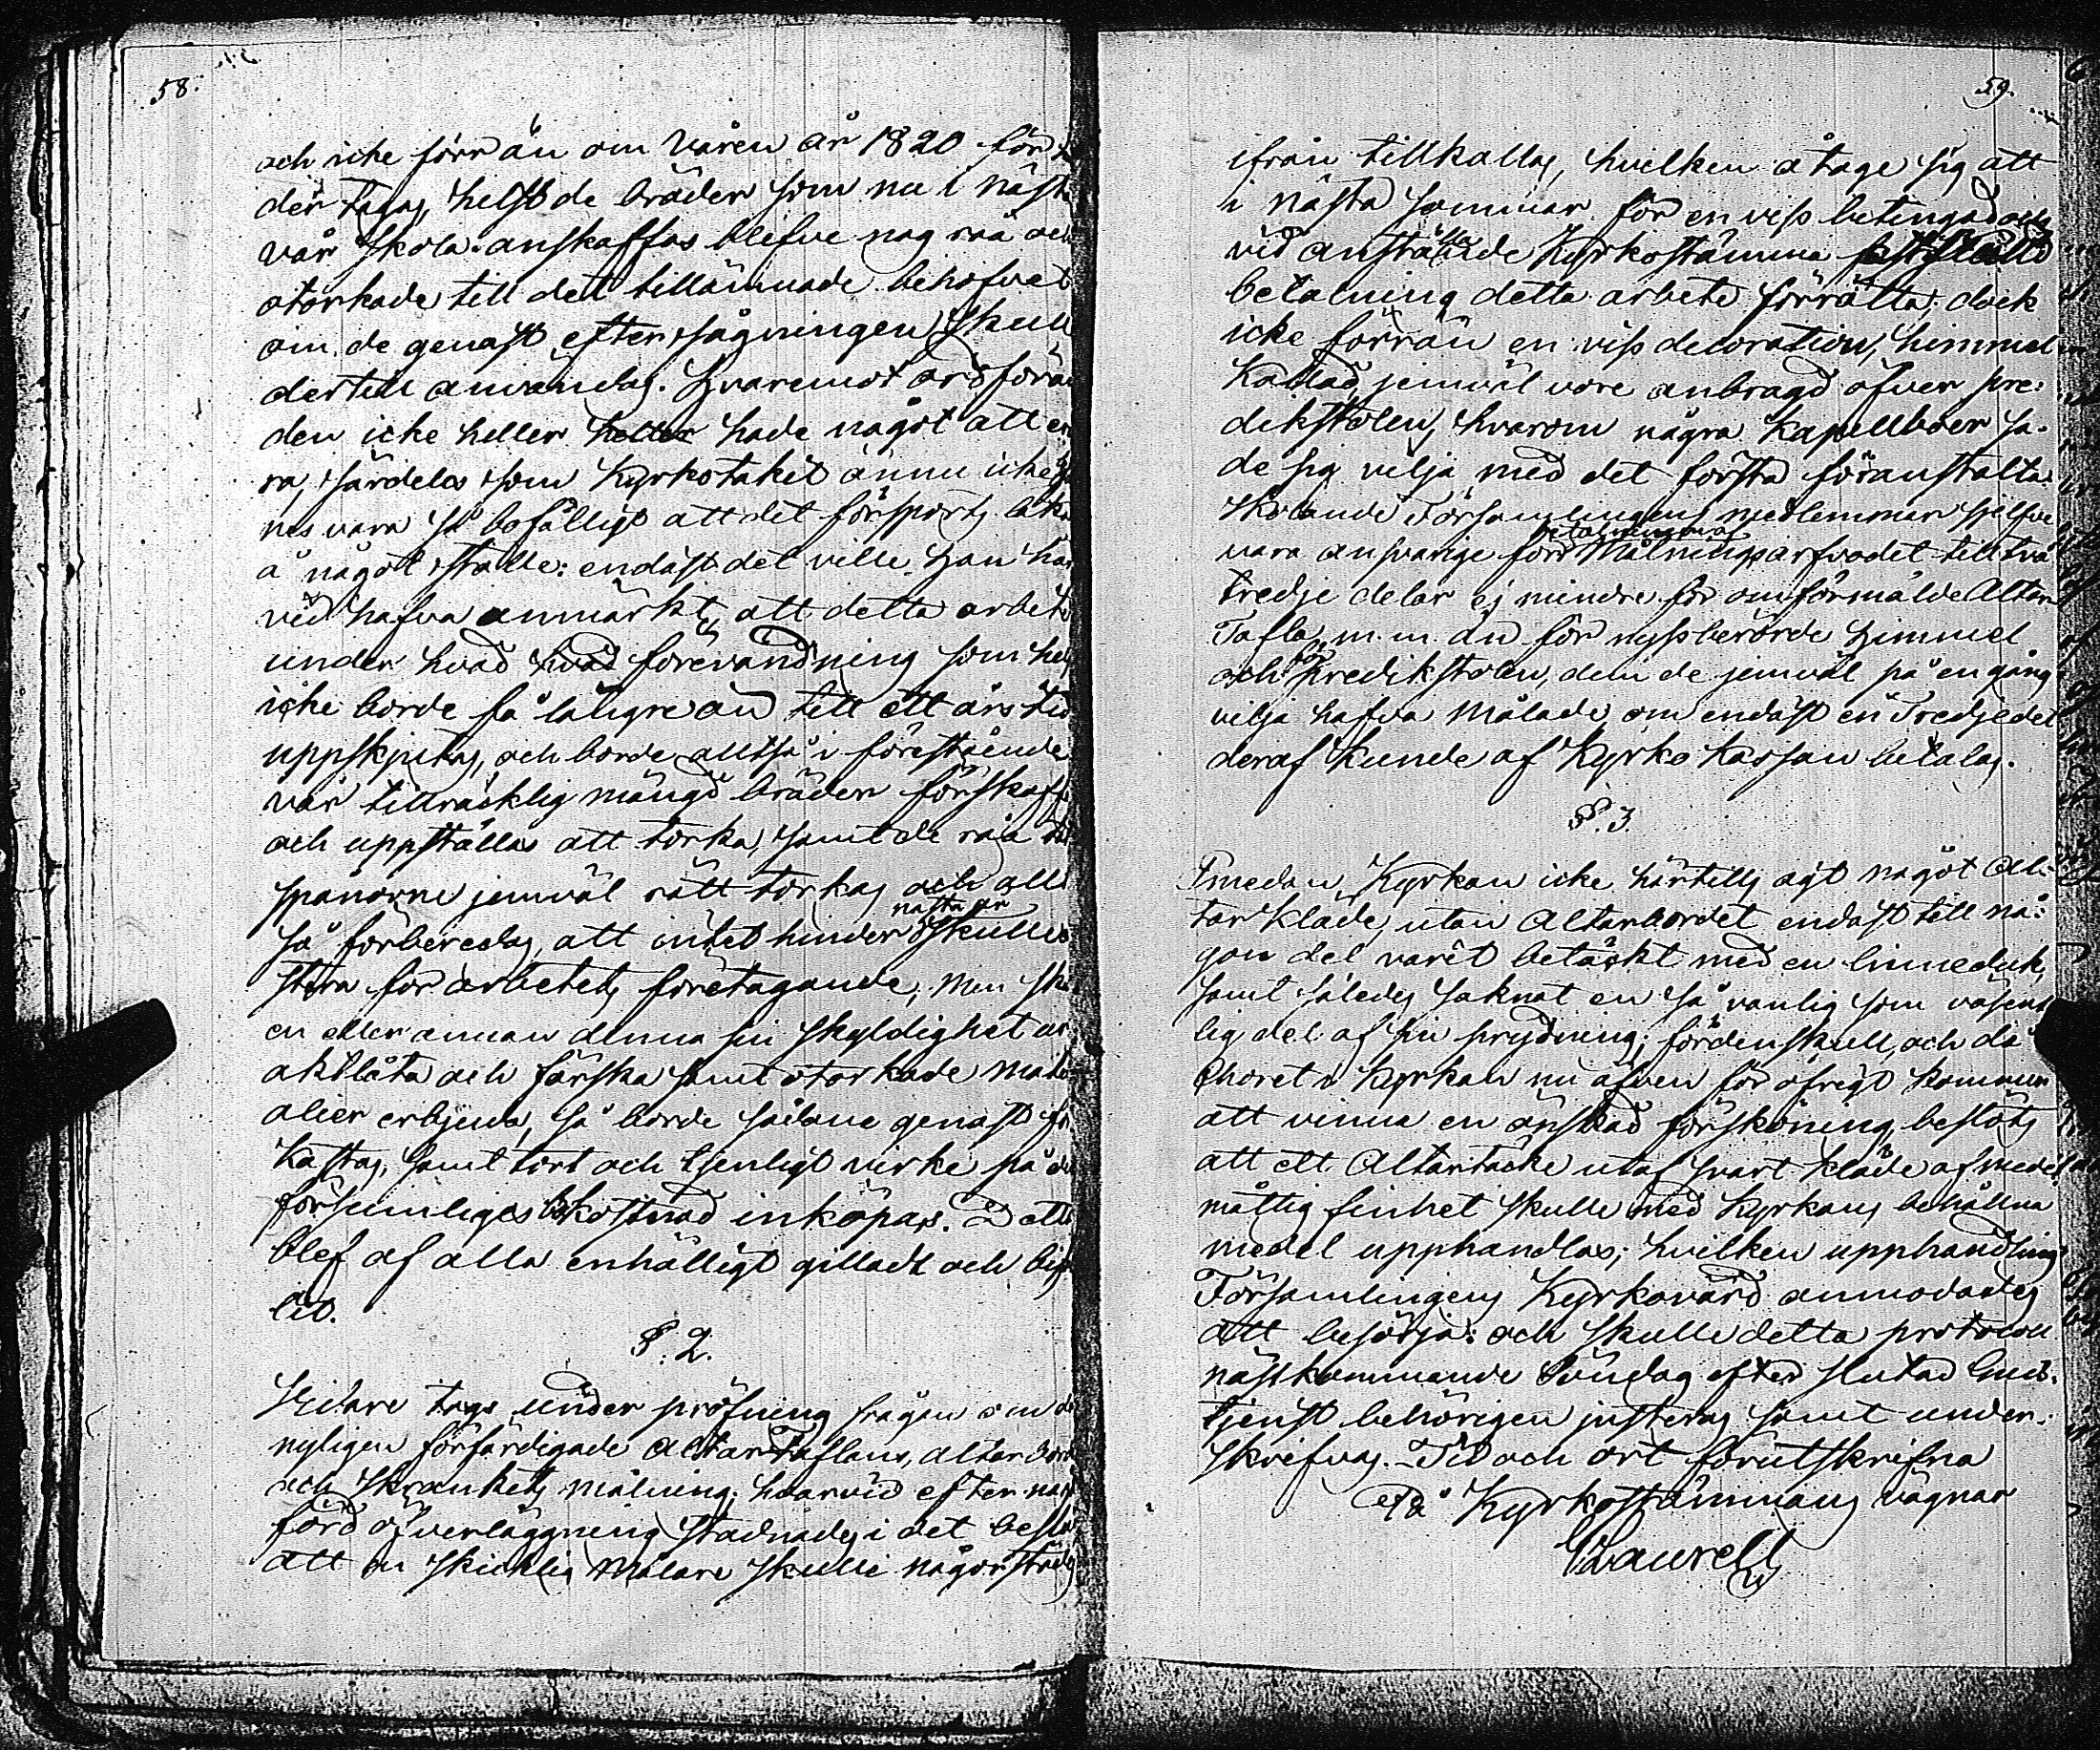 58.
och icke förr än om Våren år 1820 för
der tagas, helst de bräder som nu i nästa
vår skola anskaffas blefve nog råa och
otorkade till det tillämnade behofvet
om de genast efter sågningen skull
dertill användas. Hvaremot ordföran
den icke heller heller hade något att er
ra, särdeles som Kyrkotaket ännu icke
nes vara så bofälligt att det försports läka
å något ställe: endast det ville Han här
vid hafva anmärkt, att detta arbete
under hvad hvad förevandning som hels
icke borde få längre än till ett års tid
uppskjutas, och borde alltså i förestående
vår tillräcklig mängd bräder förskaffas
och uppställas att torka, samt de råa
spånorne jemväl rätt torkas och allt
nästa år
så förberedas, att intet hinder skulle
störa för arbetets företagande, men sku
en eller annan denna sin skyldighet ur
aktlåta och färska samt otorkade mate
alier erbjuda, så borde sådane genast för
kastas, samt tort och tjenligt virke på de
försumliges bekostnad inköpas. Dette
blef af alla enhälligt gilladt och bif
lit.
§. 2.
Vidare togs under pröfning frågan om de
nyligen förfärdigade Altartaflans, altarbord
och Skrankets målning; hvarvid efter nog
förd öfverläggning stadnades i det beslut
att en skicklig Målare skulle någorstädes
59.
ifrån tillkallas, hvilken åtage sig att
i nästa sommar för en viss betingad och
vid anställande Kyrkostämma fastställd
betalning detta arbete förrätta; dock
icke förrän en viss decoration, himmel
kallad, jemväl vore anbragd öfver pre-
dikstolen, hvarom några Kapellboer sa-
de sig vilja med det första föranstalta.
Skolande Församlingens medlemmar sjelfve
betalningen af
vara ansvarige för Målningsarfvodet till två
tredje delar ej mindre för omförmälde Altar
Tafla m. m. än för nyssberörde Himmel
för
och Predikstolen, dem de jemväl på en gång
vilja hafva målade, om endast en Tredjedel
deraf kunde af Kyrko Kassan betalas.
§. 3.
Emedan Kyrkan icke härtills ägt något Al-
tar Kläde, utan Altarbordet endast till nå-
gon del varit betäckt med en linneduk,
samt således saknat en så vanlig som väsent
lig del af sin prydning; fördenskull, och då
Choret i Kyrkan nu äfven för öfrigt kommer
att vinna en önskad försköning, beslöts
att ett Altartäcke utaf svart kläde af medel
måttig finhet skulle med Kyrkans behållna
medel upphandlas; hvilken upphandling
Församlingens Kyrkovärd anmodades
att besörja: och skulle detta protocoll
nästkommande Söndag efter slutad Guds-
tjenst behörigen justeras samt under-
skrifvas. Tid och ort förutskrifna
På Kyrkostämmans vägnar
Laurell